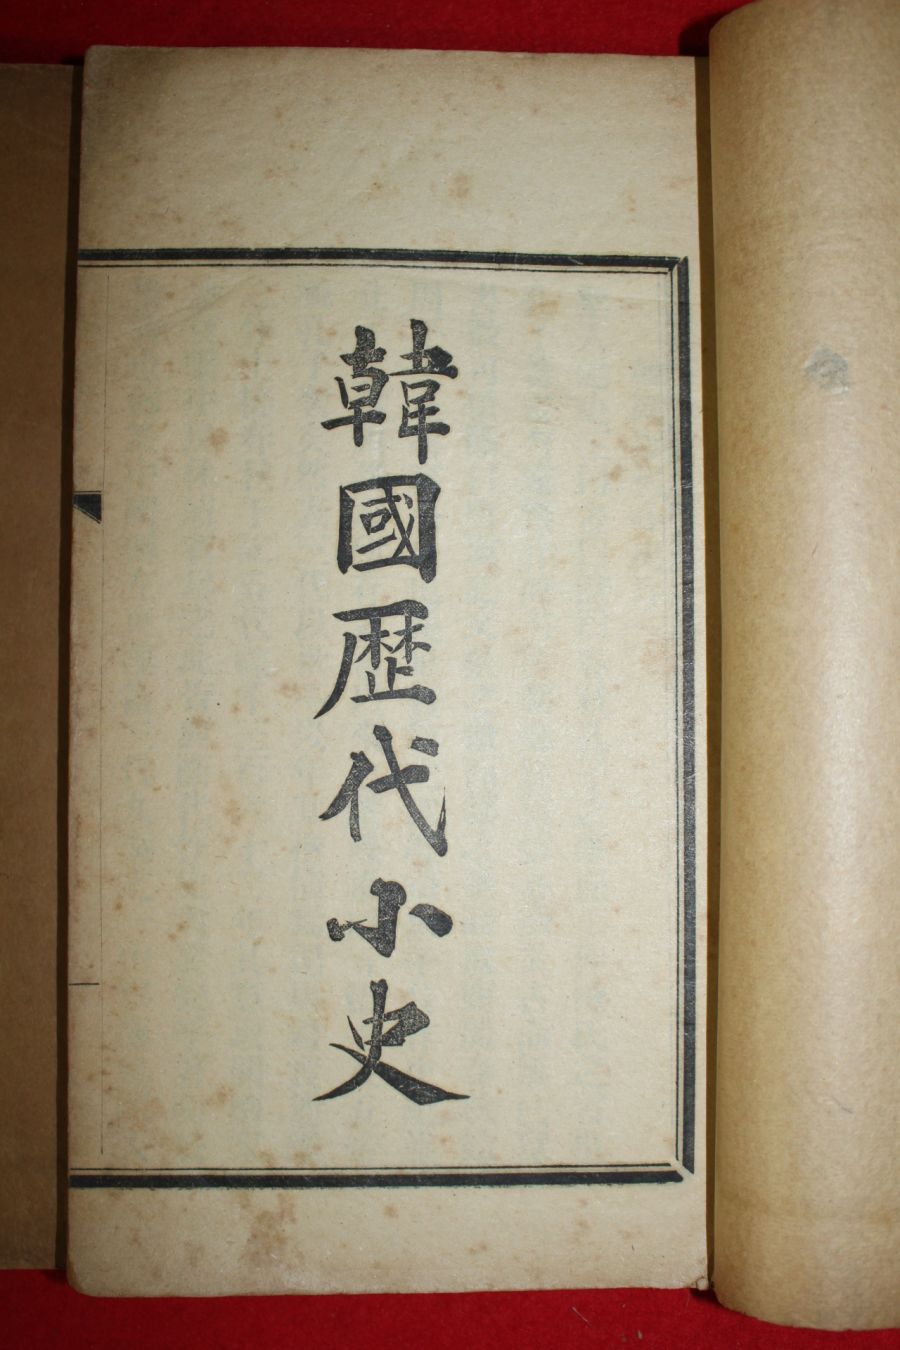 韓國歷代小史